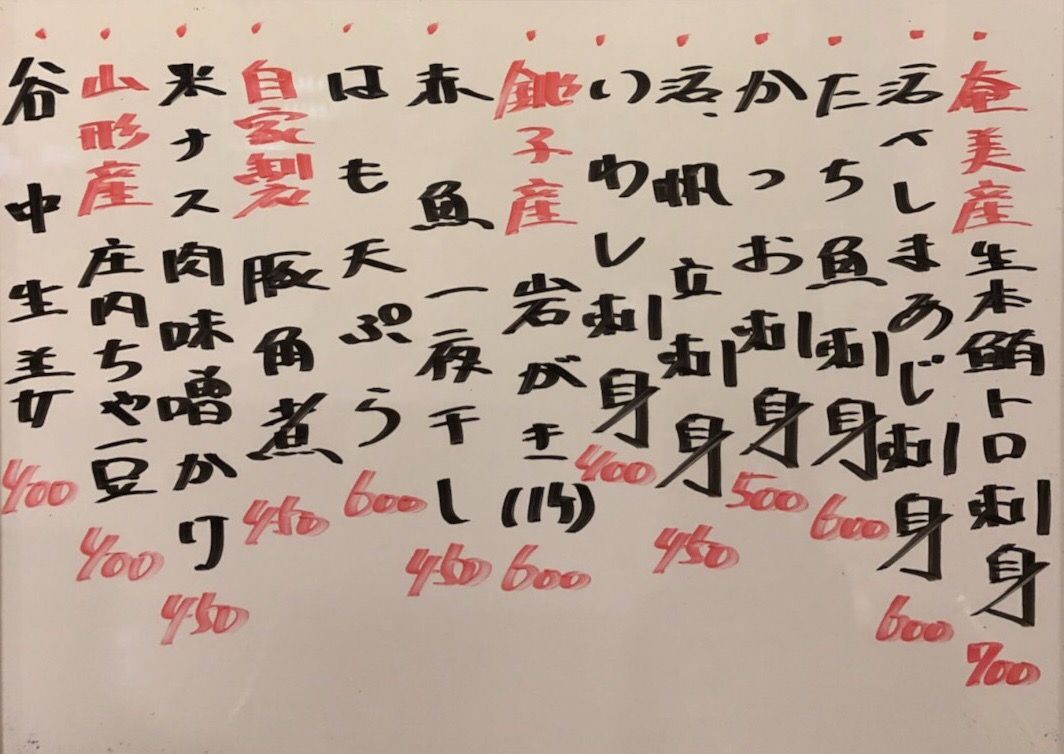 奄美産生本鮪トロ刺身 700
活〆しまあじ刺身 600
たち魚刺身 600
かつお刺身 500
活帆立刺身 450
いわし刺身 400
銚子産岩がき(1ケ) 600
赤魚一夜干し 450
はも天ぷら 600
自家製豚角煮 450
米ナス肉味噌かけ 450
山形産庄内ちゃ豆 400
谷中生姜 400